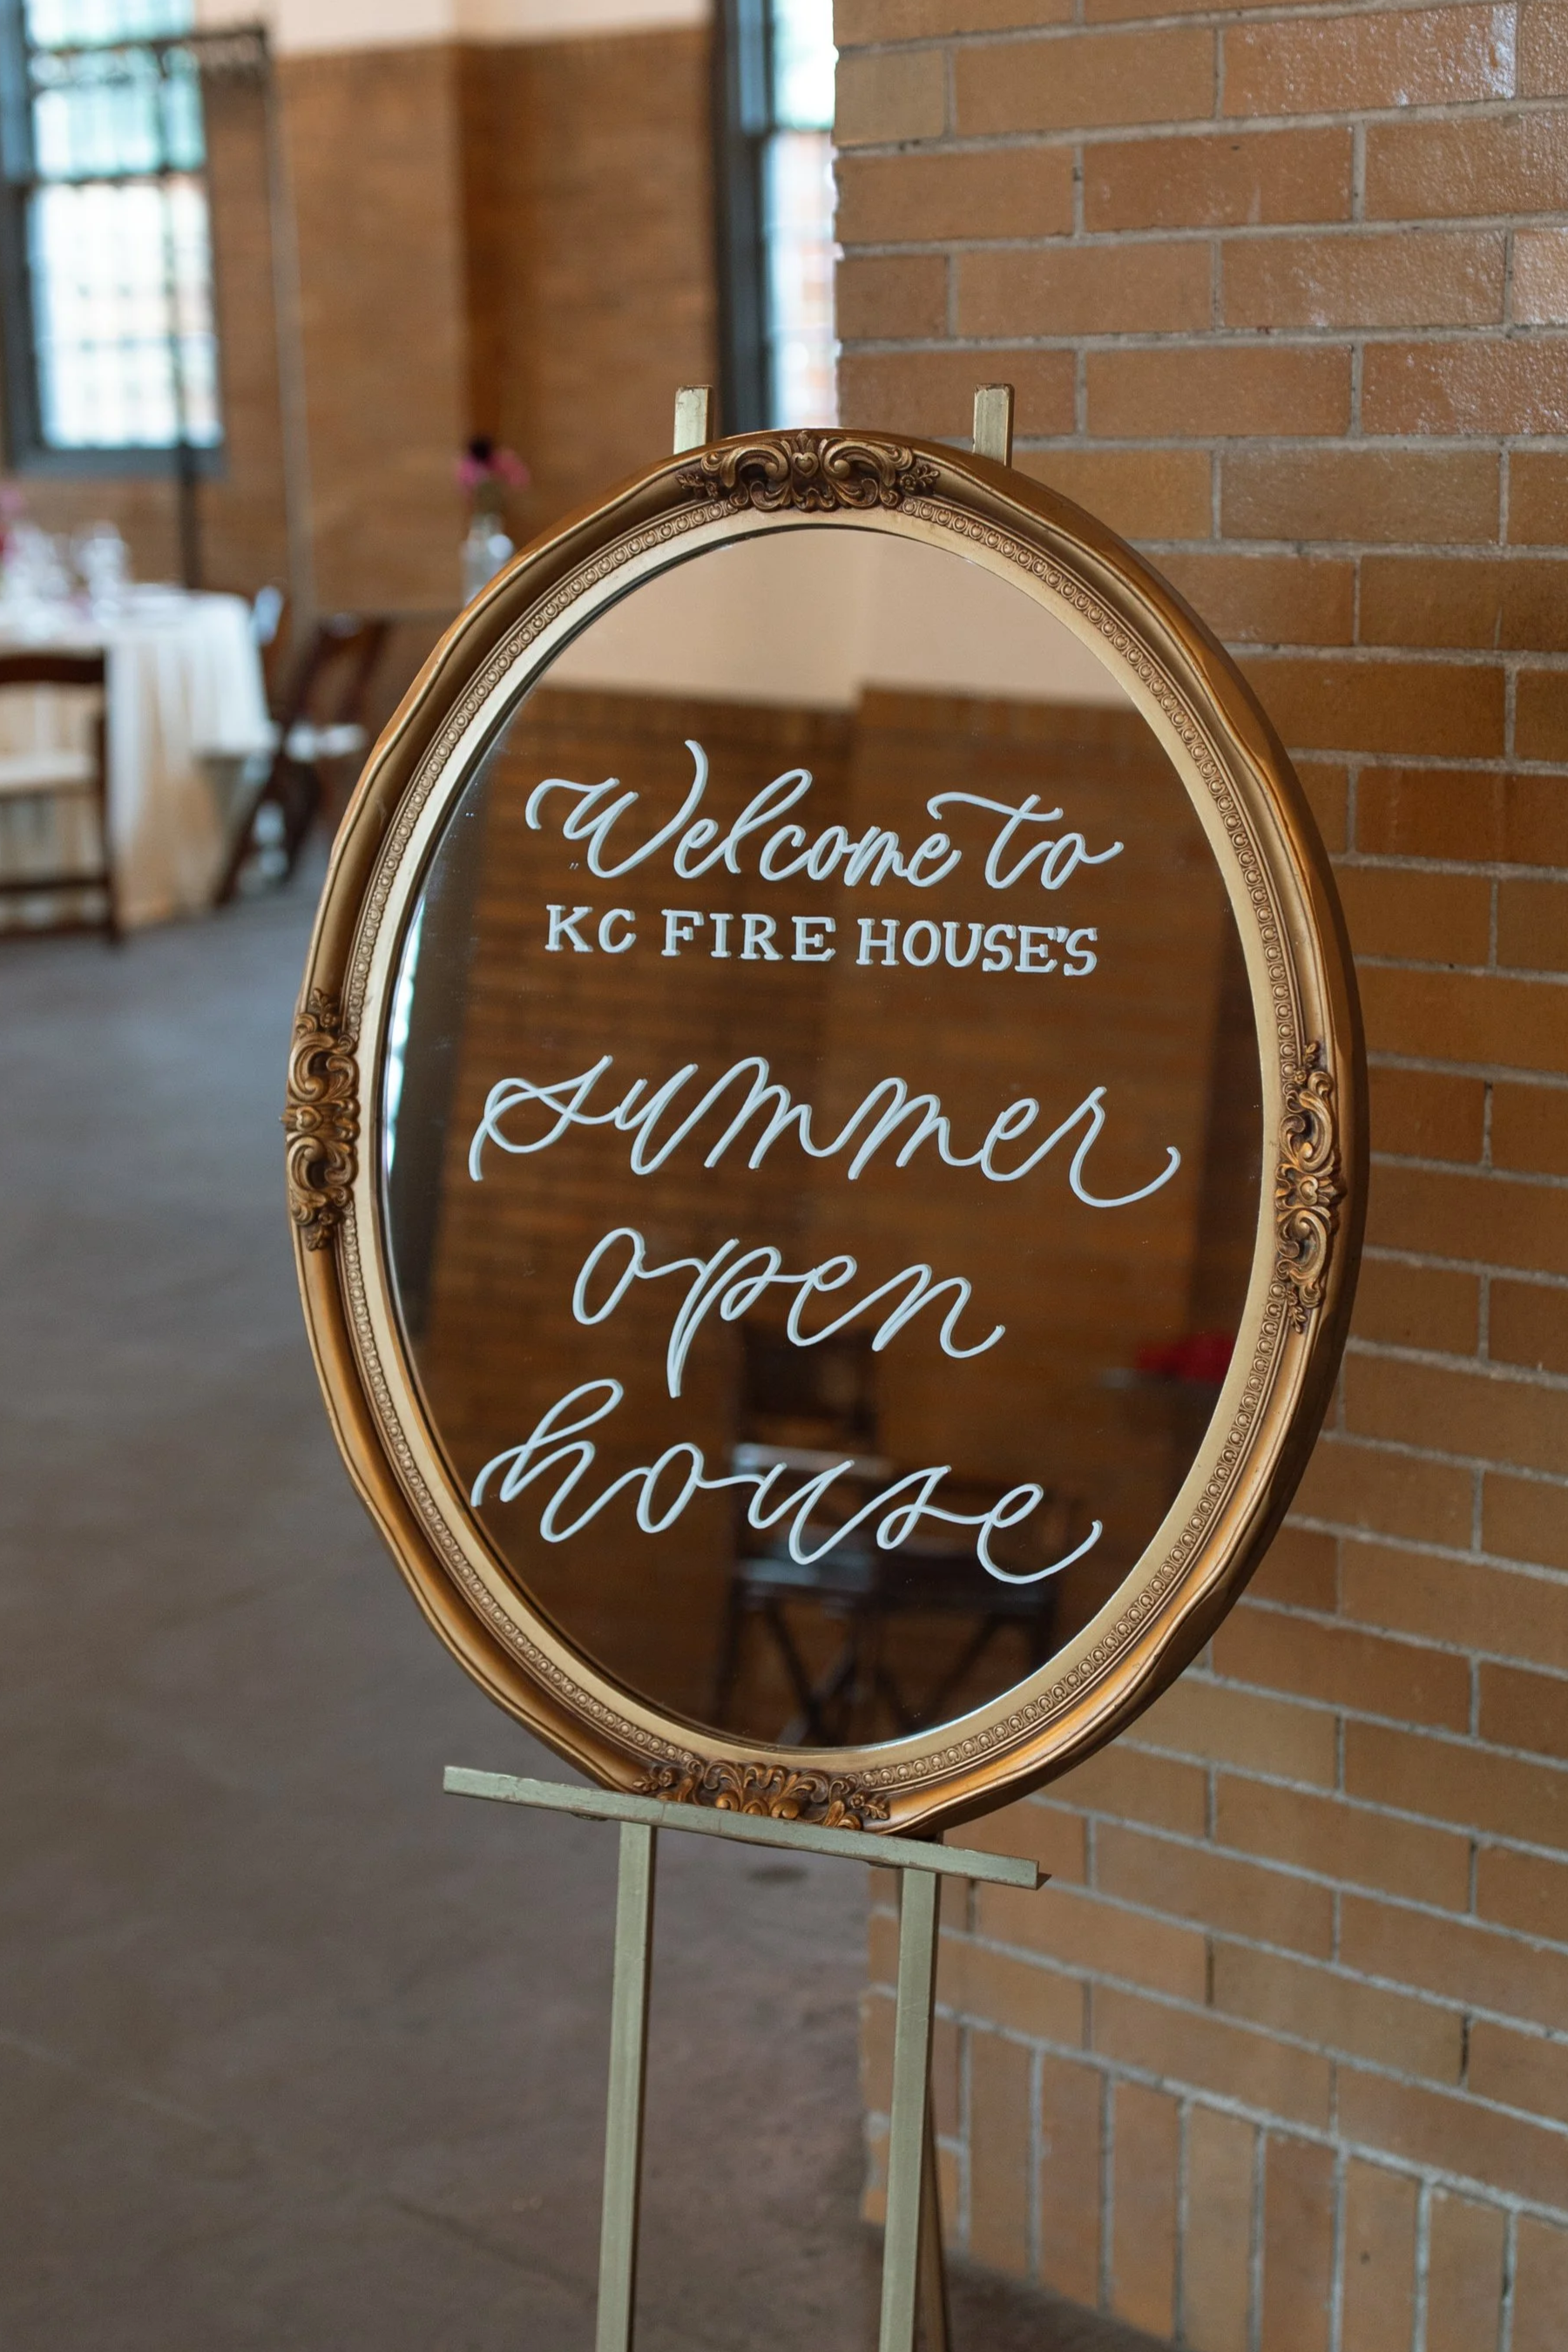 Welcome to
KC FIRE HOUSE'S
summer
open
house